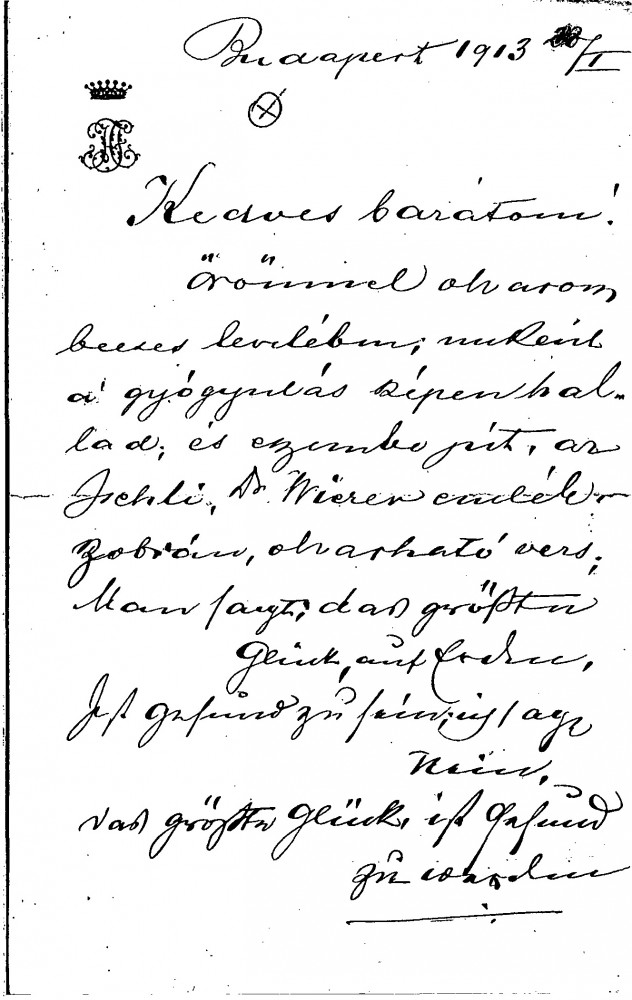 Budapest 1913 /I
Kedves barátom!
örömmel olvasom
becses levelében, miként
a' gyógyulás képen hal-
lad, és eszembe jut, az
Ischli, Dr Wierer emlék-
szobrán, olvasható vers,
Man sagt, das größte
Glück, auf Erden,
Ist gesund zu sein, ich sage
Nein,
das größte Glück, ist gesund
zu werden